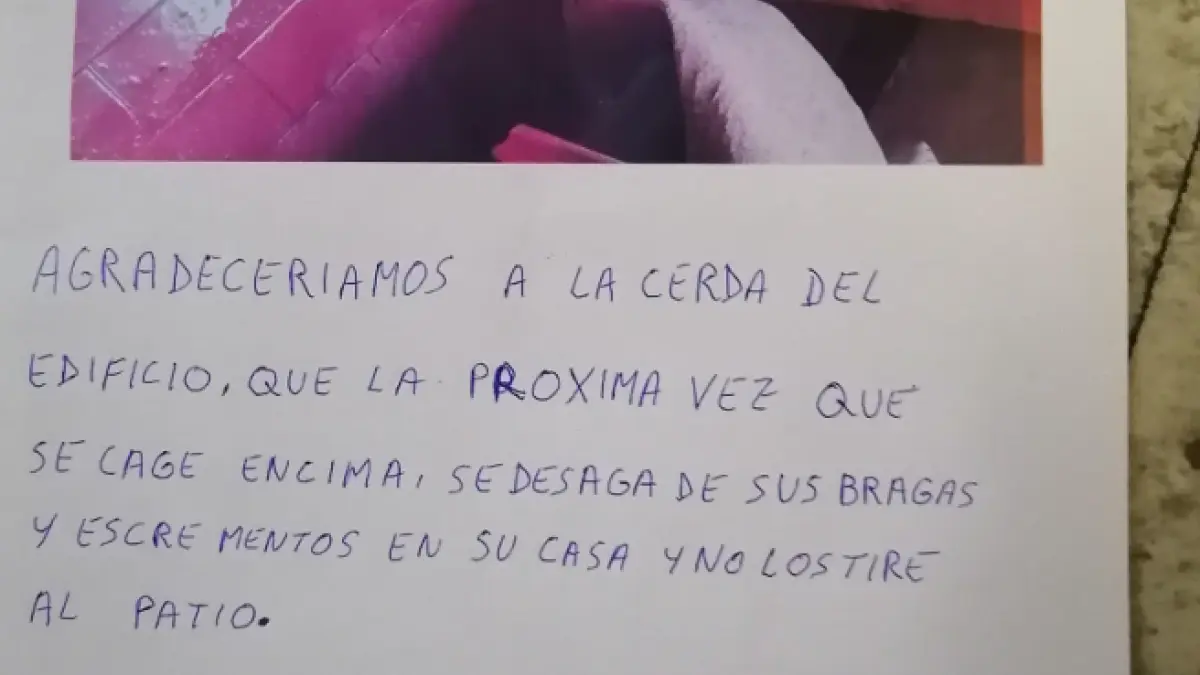 AGRADECERIAMOS A LA CERDA DEL
EDIFICIO, QUE LA PROXIMA VEZ QUE
SE CAGE ENCIMA, SE DESAGA DE SUS BRAGAS
Y ESCREMENTOS EN SU CASA Y NO LOS TIRE
AL PATIO.